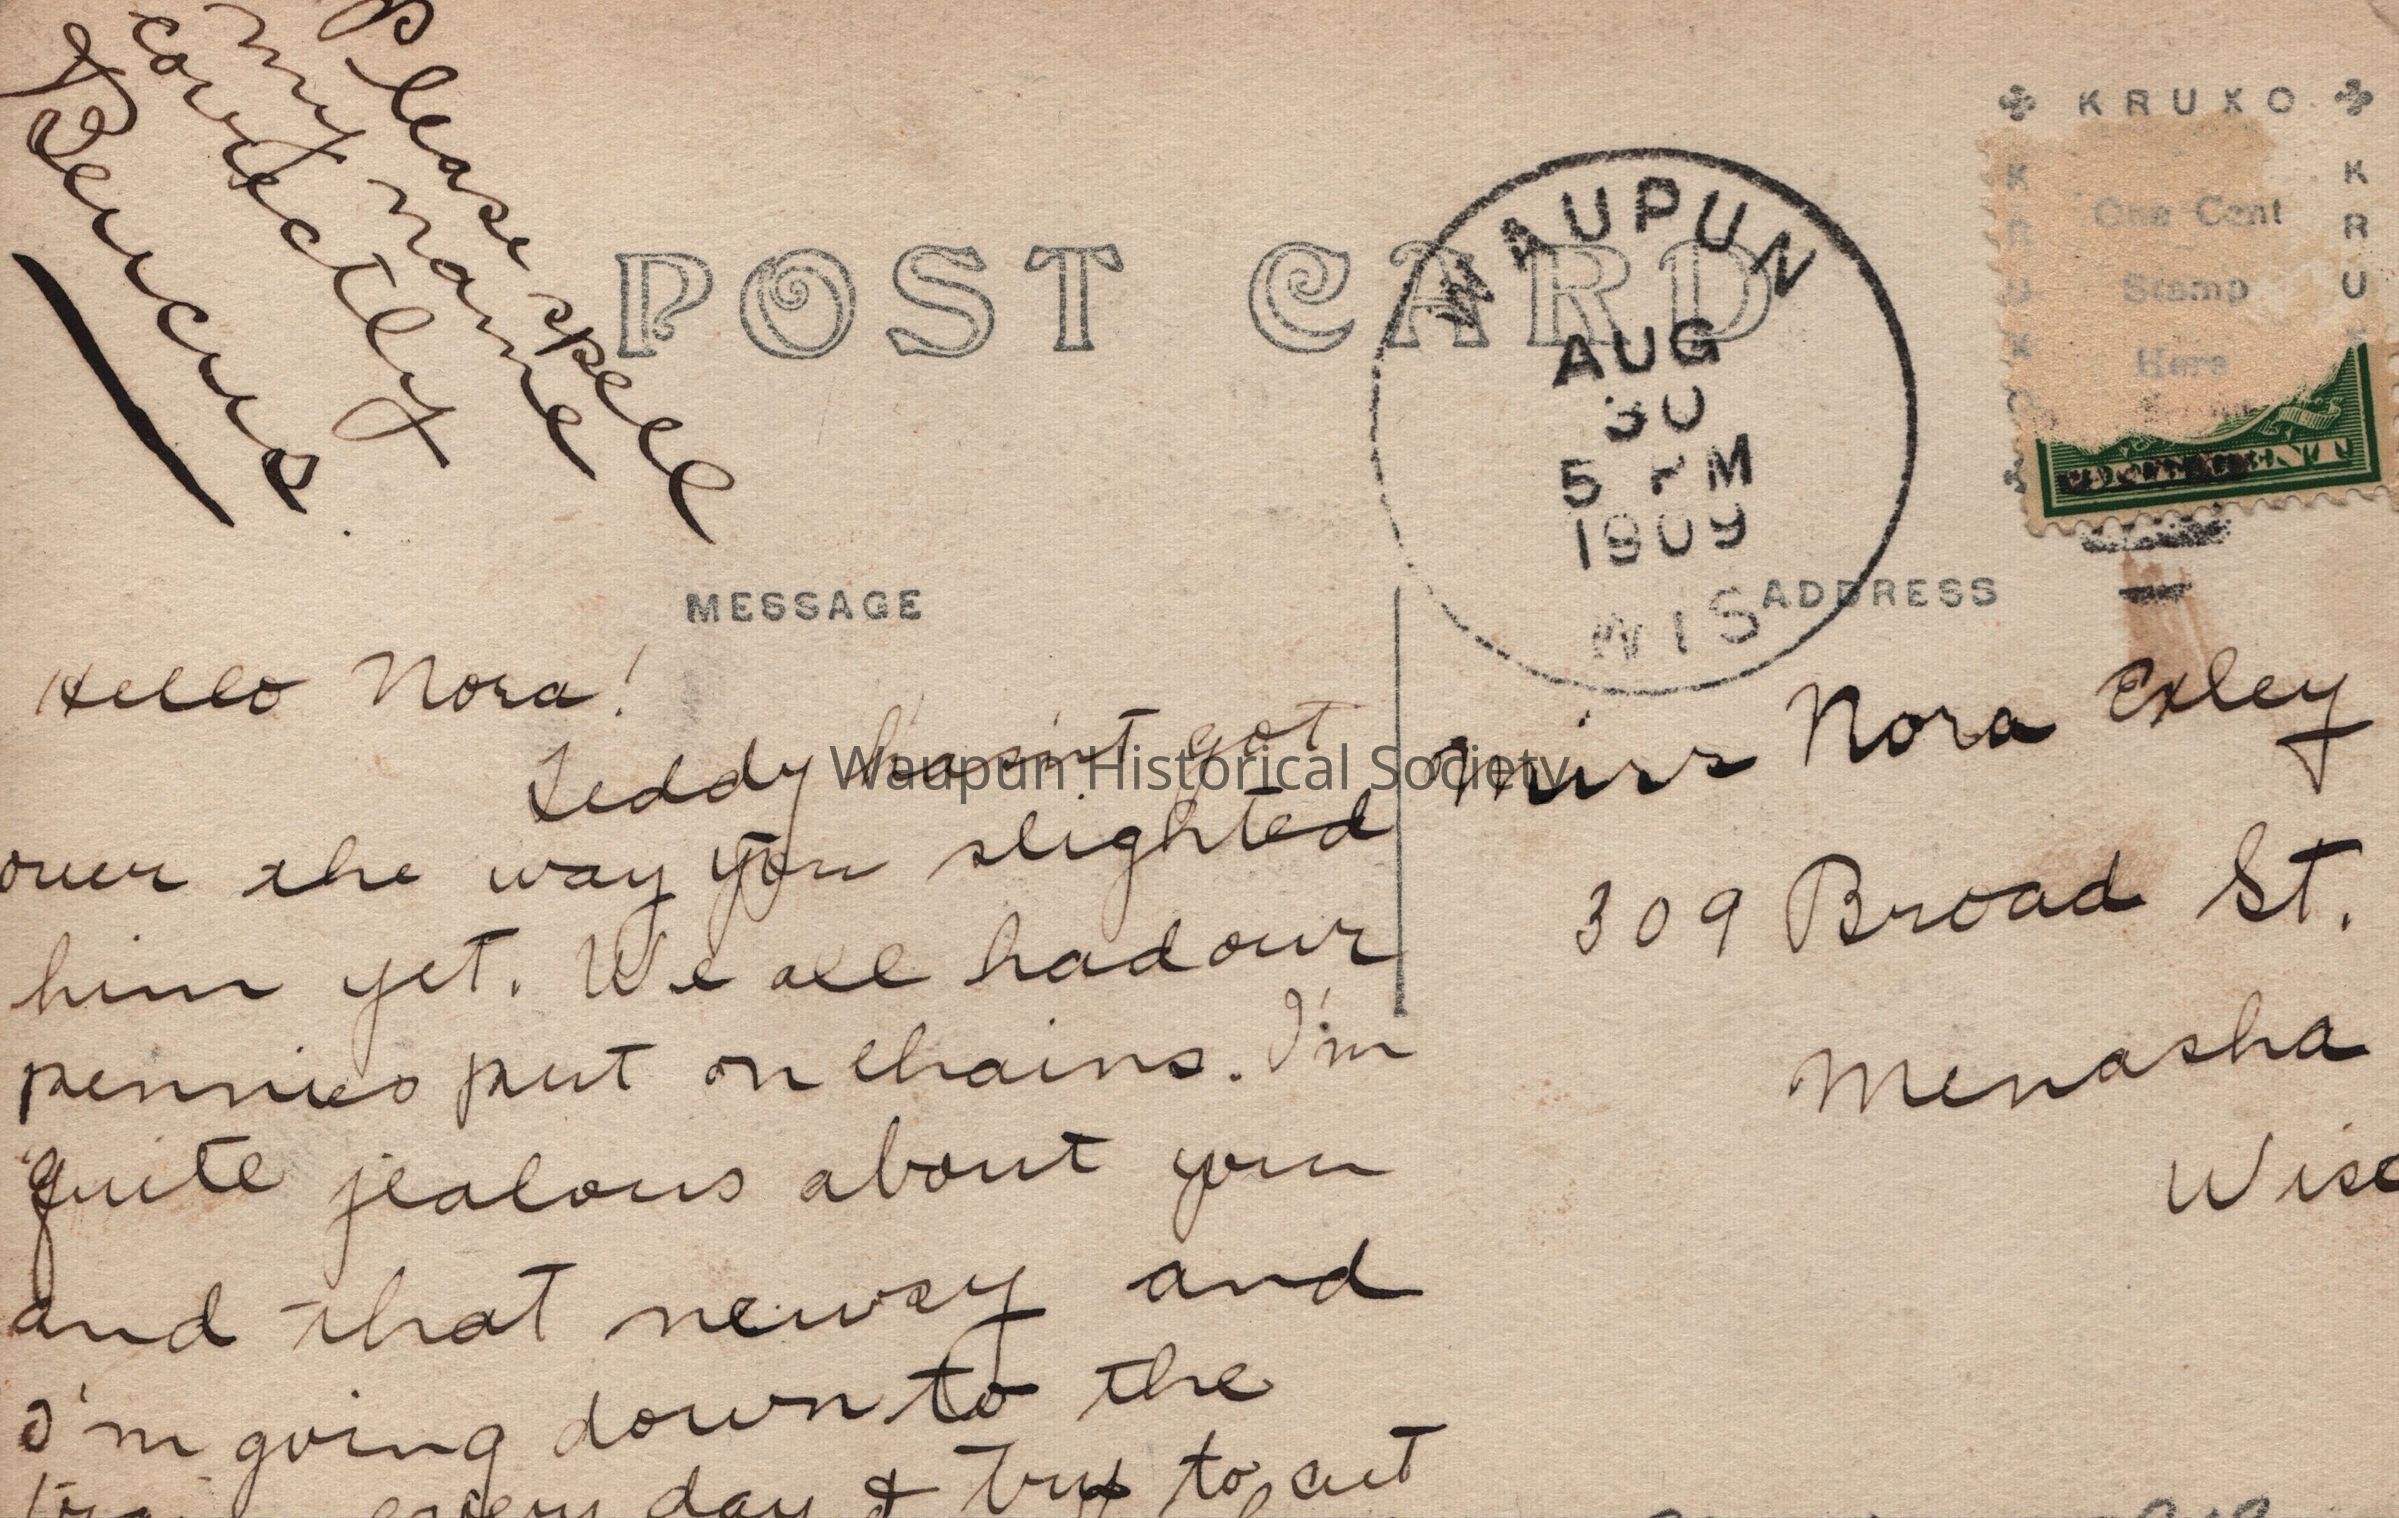 Please spell
my name
correctly
& Bercus.
POST CARD
KRUXO
KRUXO
KRU
One Cent
Stamp
Here
WAUPUN
AUG
30
5 PM
1909
WIS
MESSAGE
ADDRESS
Hello Nora!
Teddy hasn't got
over the way you slighted
him yet. We all had our
pennies put on chains. I'm
quite jealous about you
and that newsy and
I'm going down to the
every day & try to cut
Miss Nora Exley
309 Broad St.
Menasha
Wisc
Waupun Historical Society